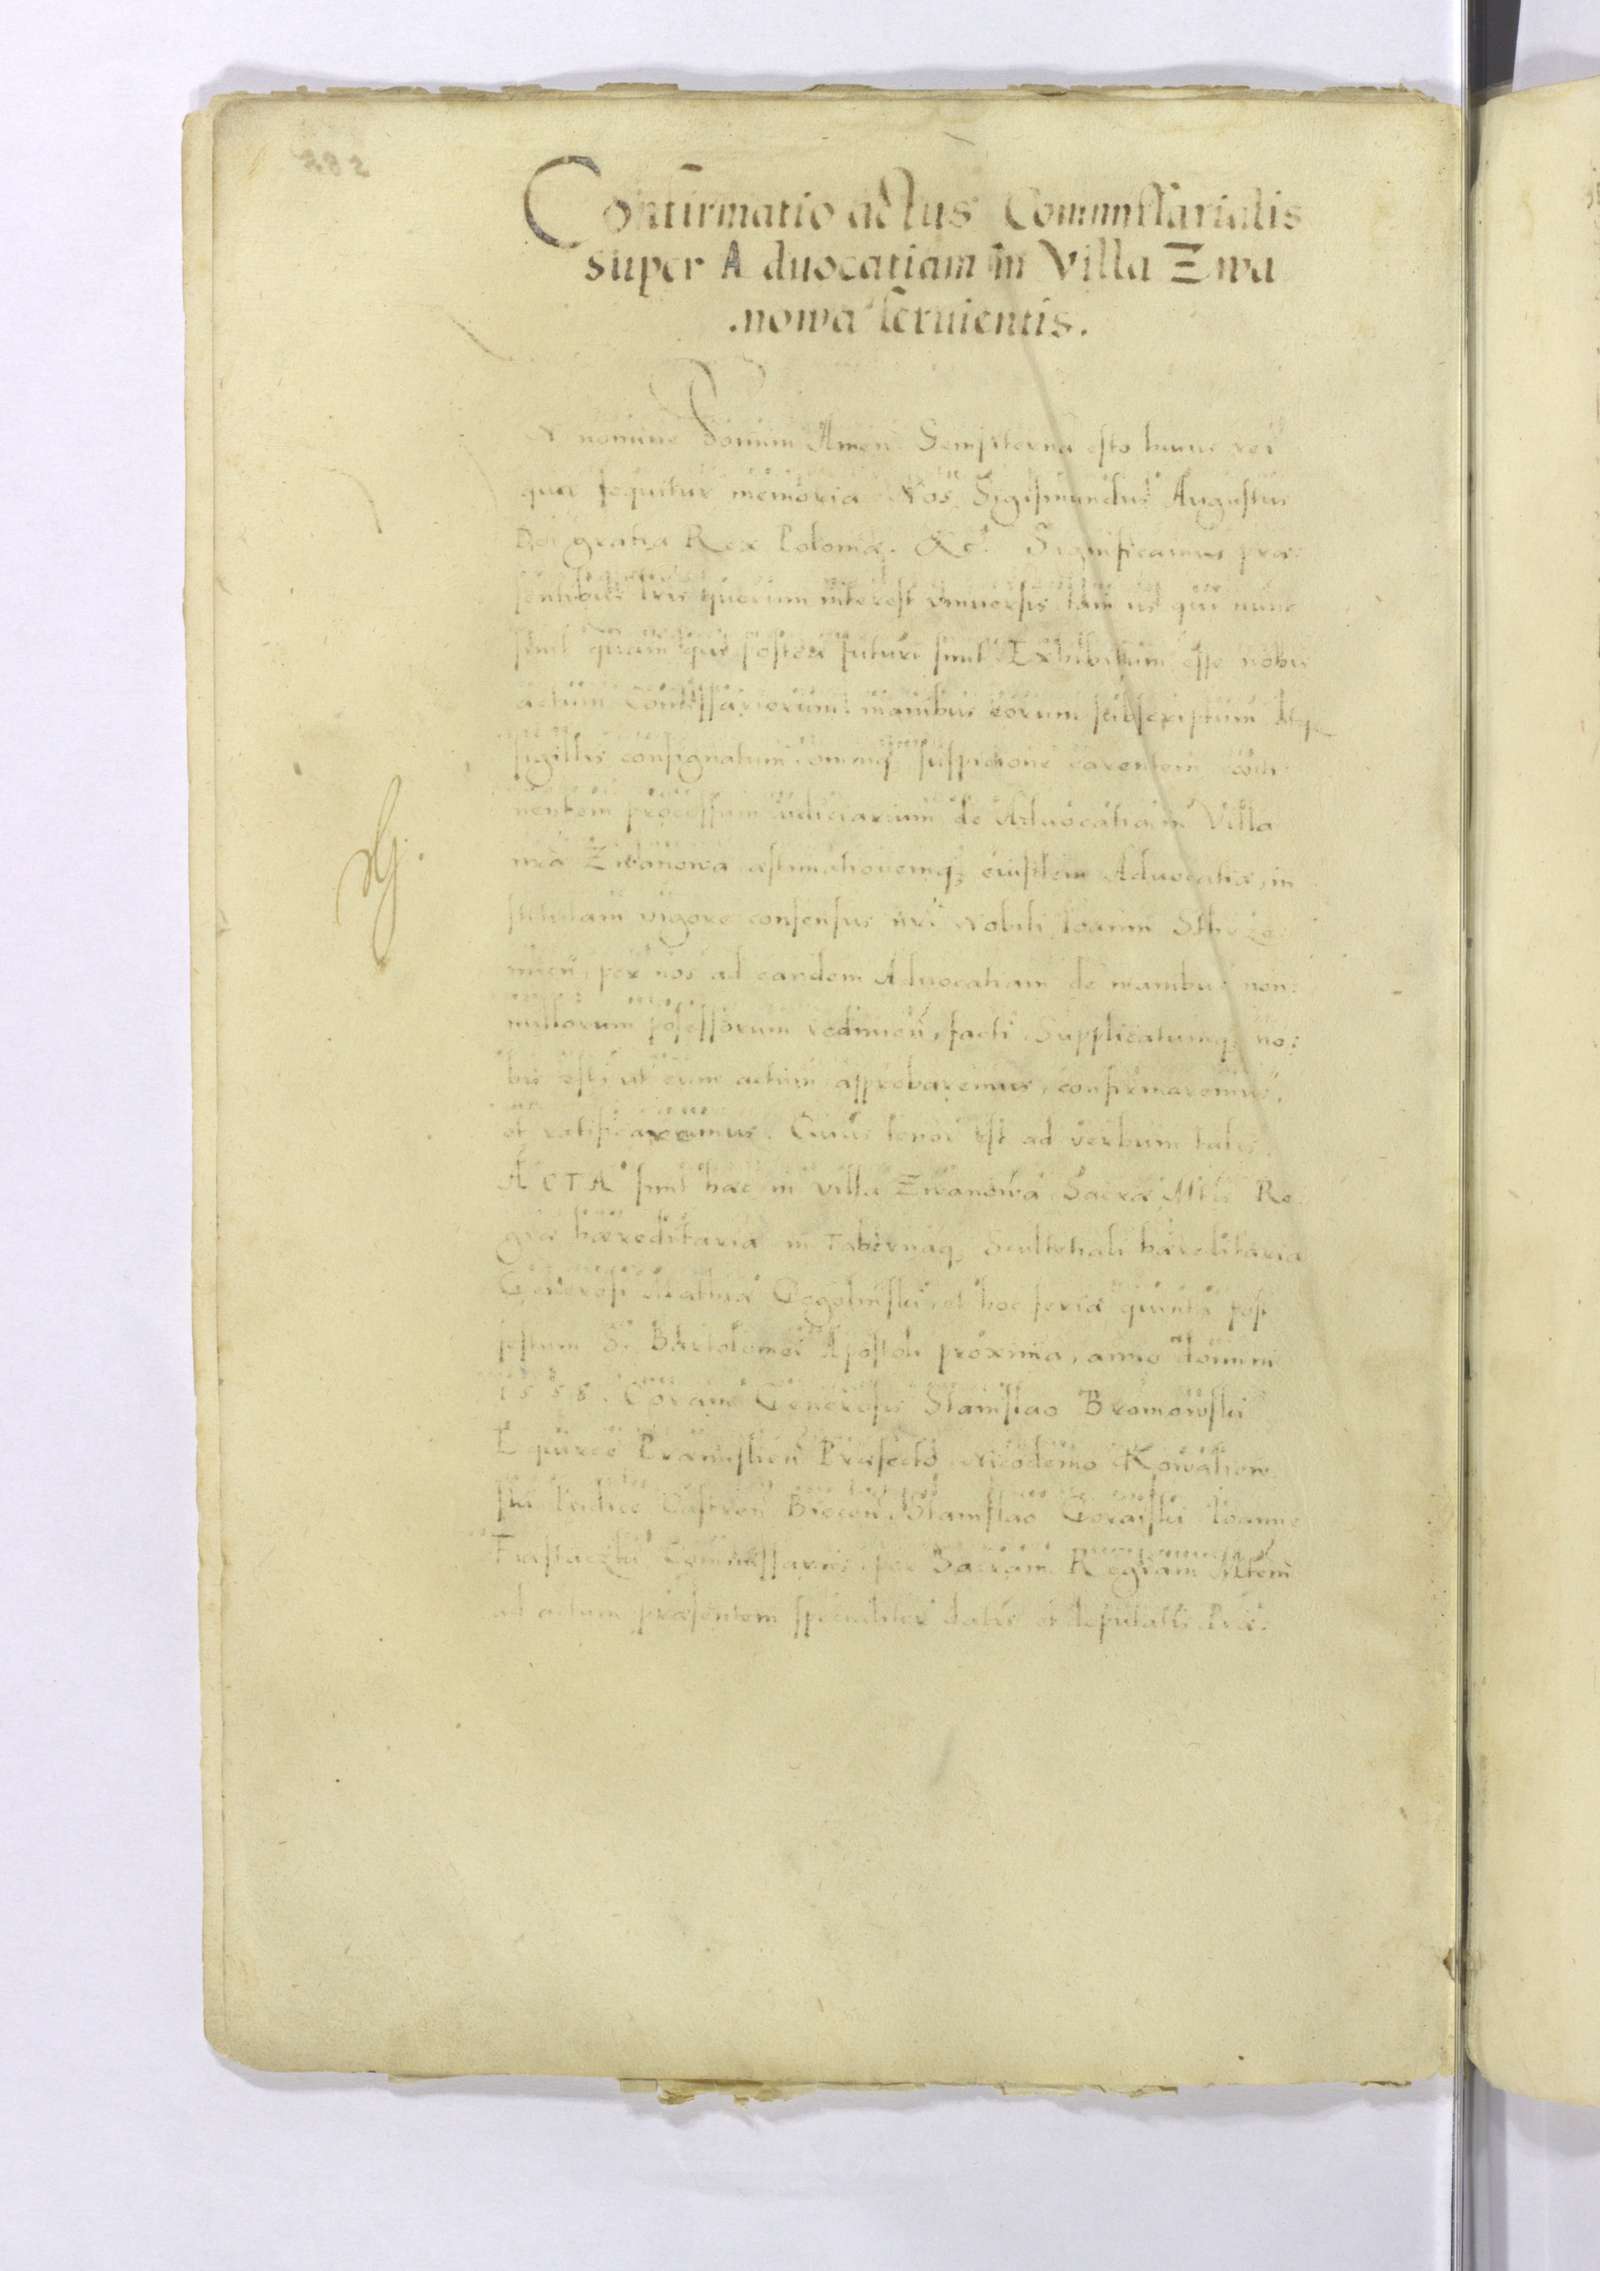 Confirmatio actus Commissarialis
super Aduocatiam in Villa Zwa
nowa seruientis.
In nomine Domini Amen. Sempiterna esto huius rei
quæ sequitur memoria. Nos Sigismundus Augustus
Dei gratia Rex Poloniæ. &c. Significamus præ:
sentibus lris quorum interest vniuersis tam iis qui nunc
sunt quam qui postea futuri sunt. Exhibitum esse nobis
actum Comissariorum manibus eorum subscriptum atq
sigillis consignatum omniq suspicione carentem conti
nentem processum iudiciarium de Aduocatia in Villa
nra Zwanowa æstimationemq eiusdem Aduocatiæ, in
stitutam vigore consensus nri Nobili Ioanni
per nos ad eandem Aduocatiam de manibus non:
nullorum possessorum redimen, facti. Supplicatumq no:
bis est, ut eum actum approbaremus, confirmaremus,
et ratificaremus. Cuius tenor est ad verbum talis.
ACTA sunt hæc in villa Zwanowa Sacræ Mtis Re
giæ hæreditaria in Tabernaq Scultetiali hæreditaria
Generosi Mathiæ et hoc feria quinta post
festum S. Bartolomei Apostoli proxima, anno domini
1558. Coram Generosis Stanislao Bromowski
Præfecto Nicodemo Kowaliow
ski Iudice Castren Biecen, Stanislao Goraiski Ioanne
Commissariis per Sacram Regiam Mtem
ad actum præsentem specialiter datis et deputatis Præ: